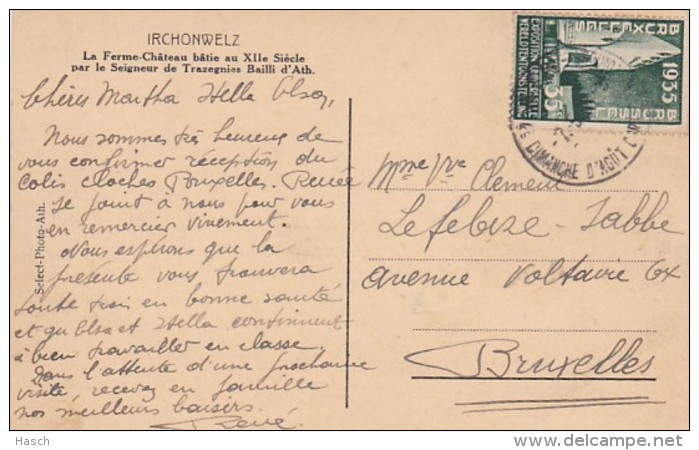 IRCHONWELZ
La Ferme-Château bâtie au XIIe Siècle
par le Seigneur de Trazegnies Bailli d'Ath.
Chères Martha Stella Elsa,
Nous sommes très heureux de
vous confirmer réception du
Colis cloches Bruxelles. Renée
se joint à nous pour vous
en remercier vivement.
Nous espérons que la
présente vous trouvera
toute trois en bonne santé
et qu'Elsa et Stella continuent
à bien travailler en classe.
Dans l'attente d'une prochaine
visite, recevez en famille
nos meilleurs baisers.
René.
Select-Photo-Ath.
Mme Vve Clement
Lefebvre-Labbe
avenue Voltaire 64
Bruxelles
BRUXELLES 1935 BRUSSEL
EXPOSITION UNIVERSELLE
WERELDTENTOONSTELLING
35c
DIMANCHE D'AOUT
Hasch
delcampe.net